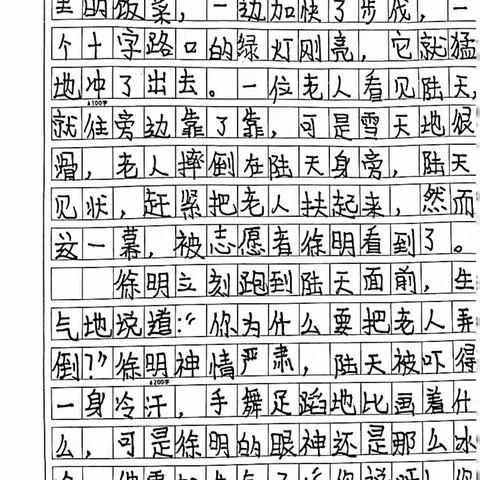 里明饭菜，一边加快了步伐，一
个十字路口的绿灯刚亮，它就猛
地冲了出去。一位老人看见陆天，
▲100字
就往旁边靠了靠，可是雪天地很
滑，老人摔倒在陆天身旁，陆天
见状，赶紧把老人扶起来，然而
这一幕，被志愿者徐明看到了。
徐明立刻跑到陆天面前，生
气地说道：“你为什么要把老人弄
倒？”徐明神情严肃，陆天被吓得
▲200字
一身冷汗，手舞足蹈地比画着什
么，可是徐明的眼神还是那么冰